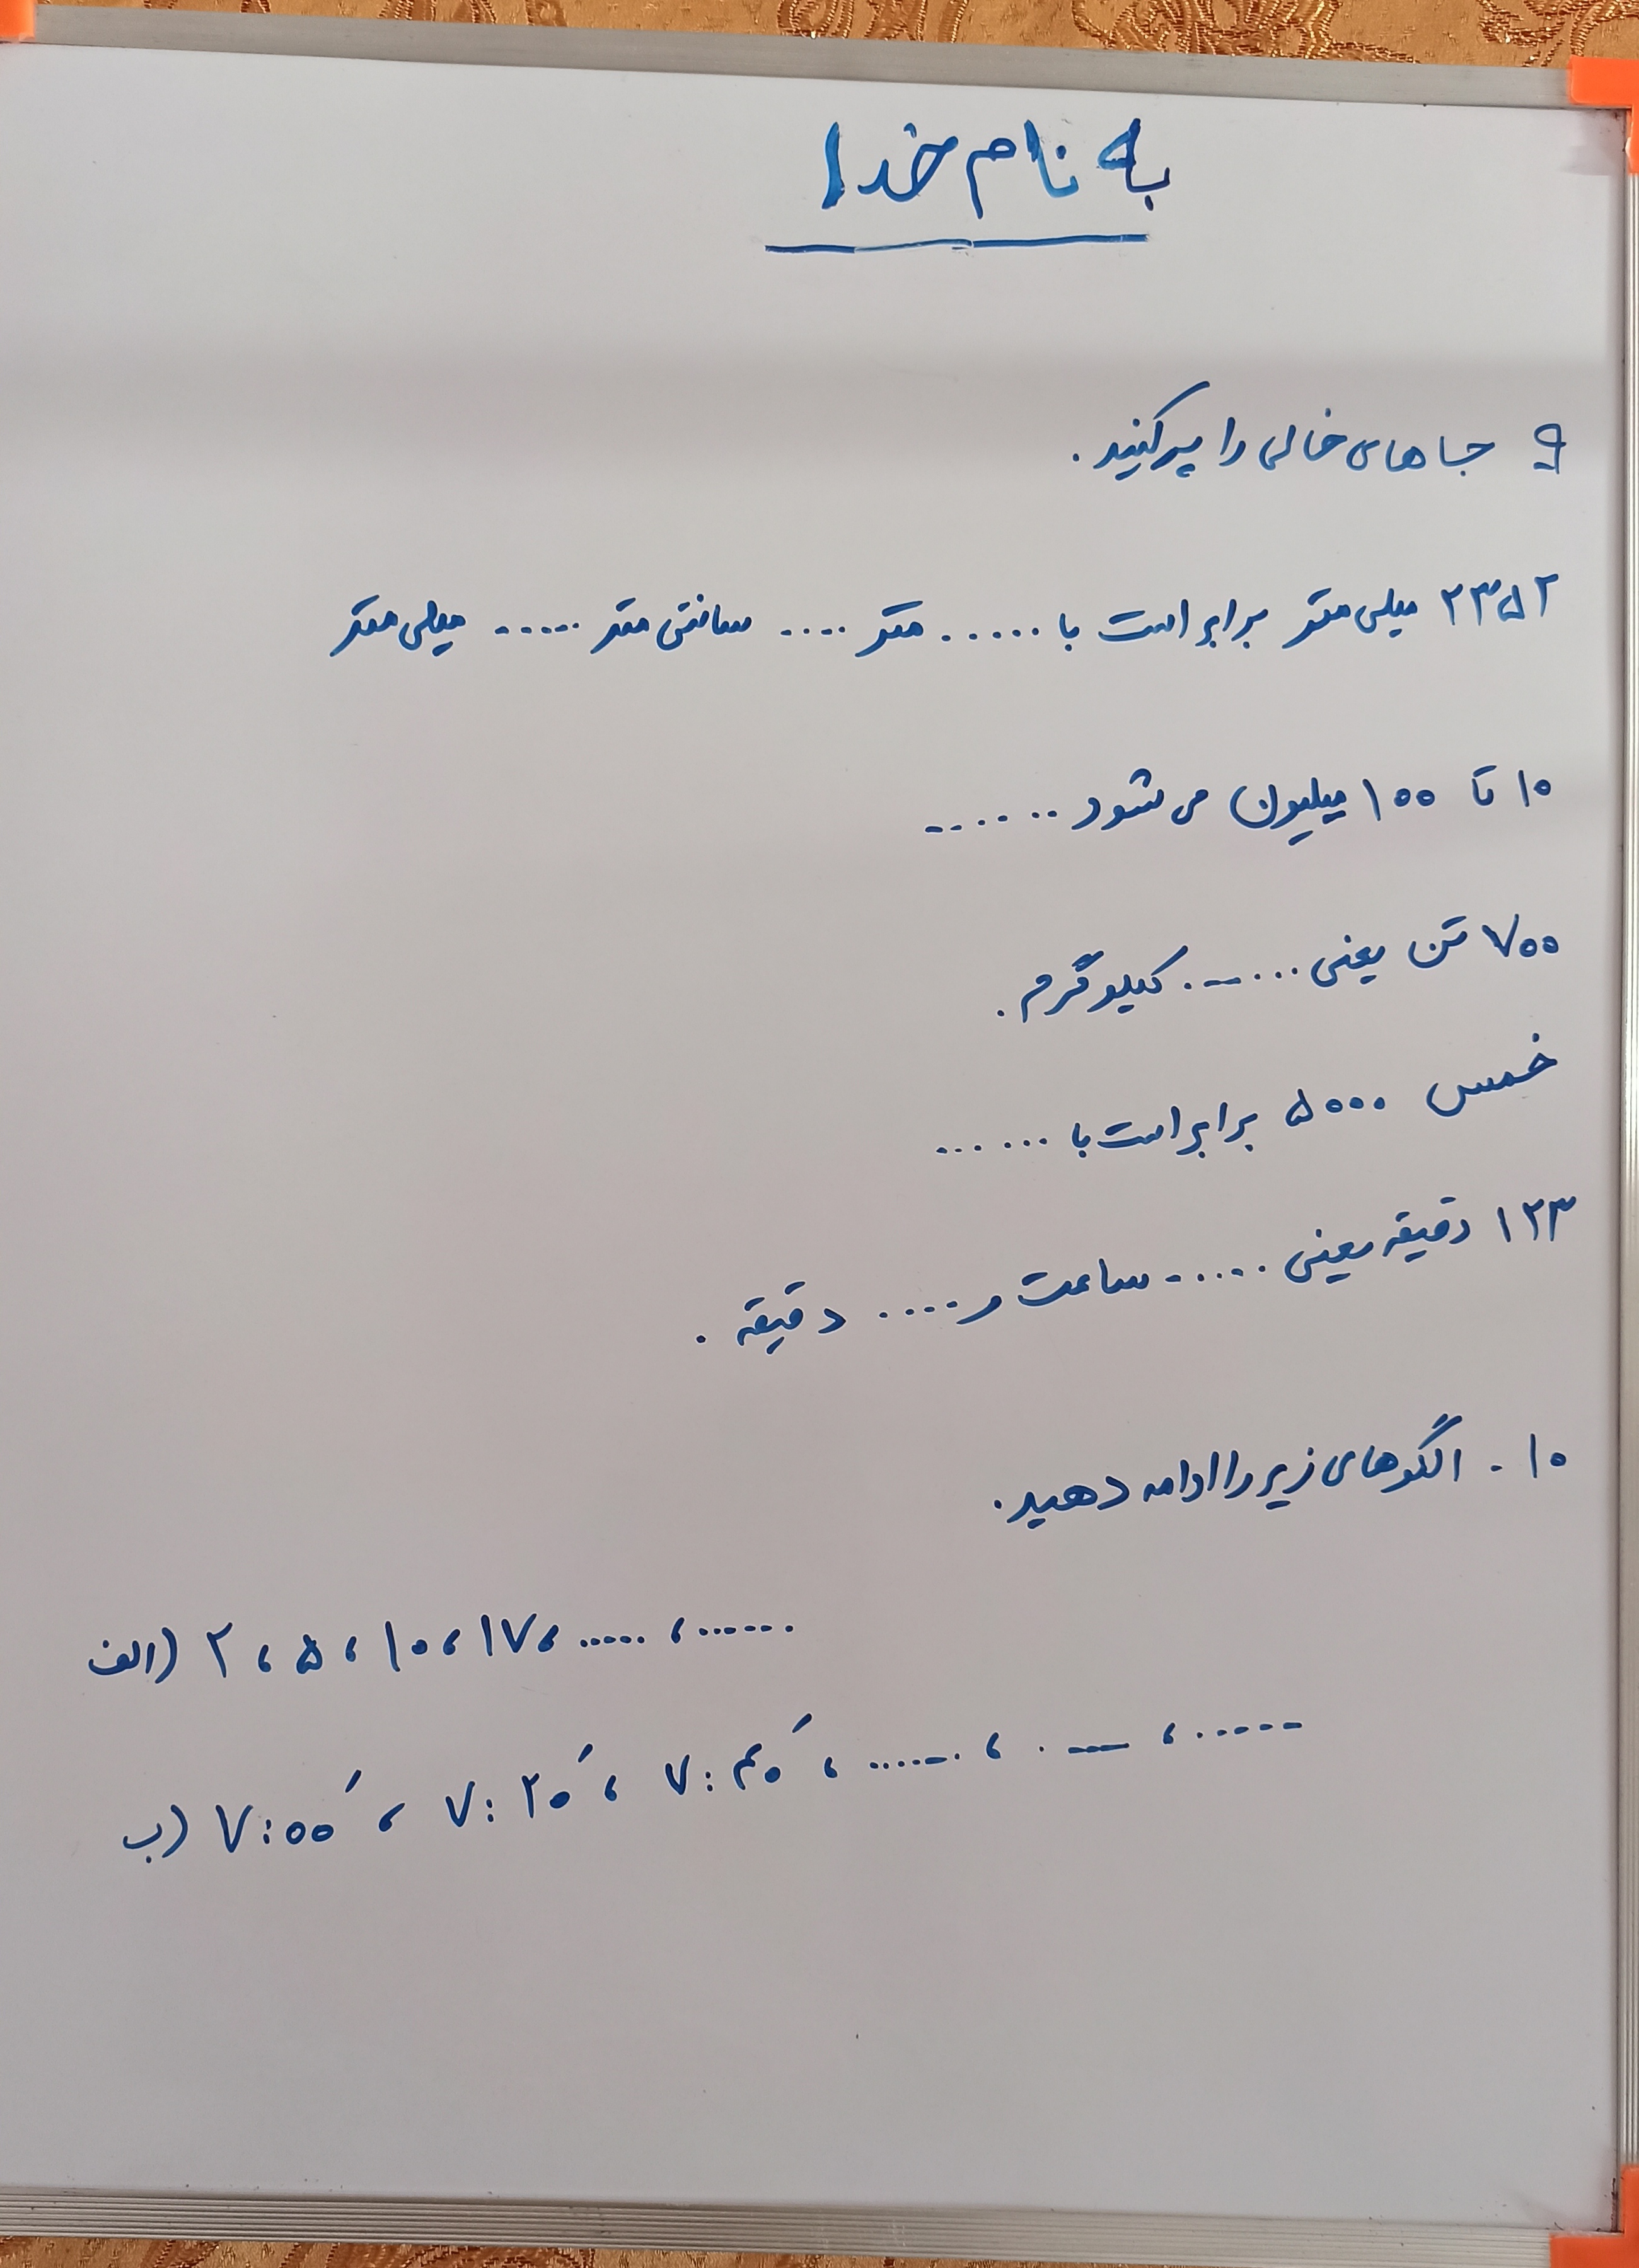 به نام خدا
۹ جاهای خالی را پر کنید.
۲۳۵۲ میلی متر برابر است با ...... متر .... سانتی متر ..... میلی متر
۱۰ تا ۱۰۰ میلیون می شود .......
۷۰۰ تن یعنی ...... کیلو گرم.
خمس ۵۰۰۰ برابر است با ......
۱۲۳ دقیقه یعنی ...... ساعت و .... دقیقه.
۱۰. الگوهای زیر را ادامه دهید.
الف) ۲ ، ۵ ، ۱۰ ، ۱۷ ، ..... ، ......
ب) ۷:۰۰′ ، ۷:۲۰′ ، ۷:۴۰′ ، ...... ، .... ، .....